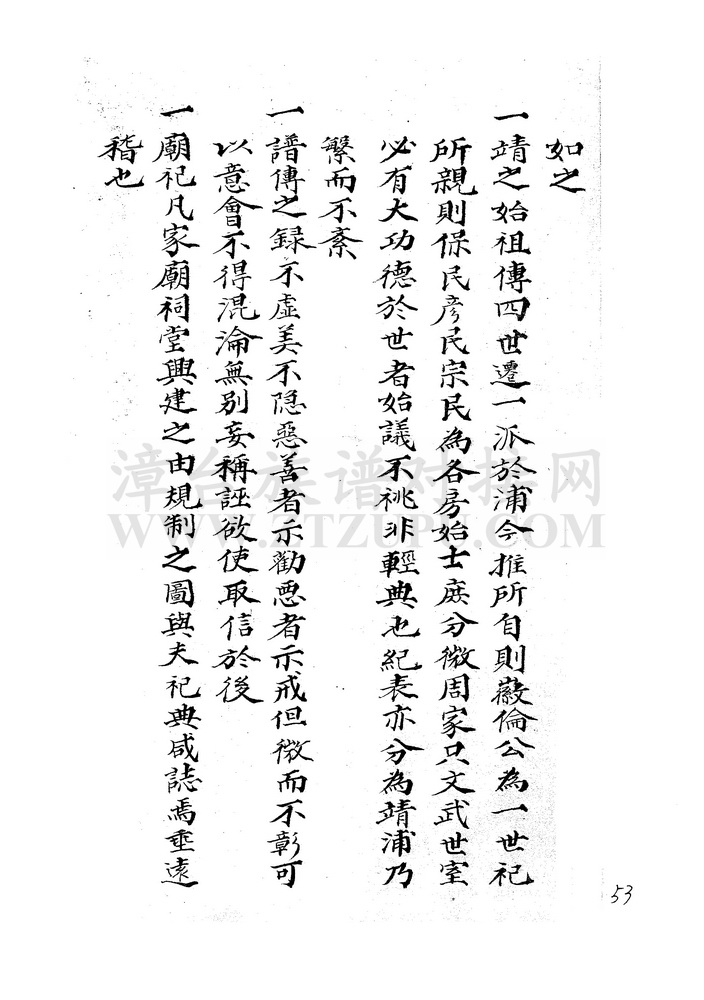 如之
一靖之始祖傳四世遷一派於浦今推所自則徽倫公為一世祀
所親則保民彥民宗民為各房始士庶分微周家只文武世室
必有大功德於世者始議不祧非輕典也紀表亦分為靖浦乃
繁而不紊
一譜傳之録不虛美不隱惡善者示勸惡者示戒但微而不彰可
以意會不得混淪無別妄稱誣欲使取信於後
一廟祀凡家廟祠堂興建之由規制之圖與夫祀典咸誌焉垂遠
稽也
漳台族谱对接网
WWW.ZTZUPU.COM
53